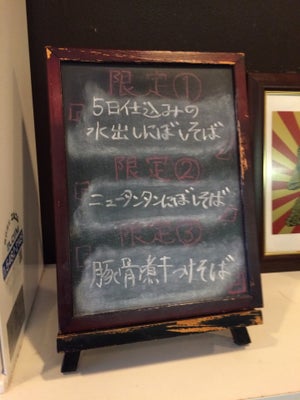 限定①
「5日仕込みの
水出しにぼしそば」
限定②
「ニュータンタンにぼしそば」
限定③
「豚骨煮干つけそば」